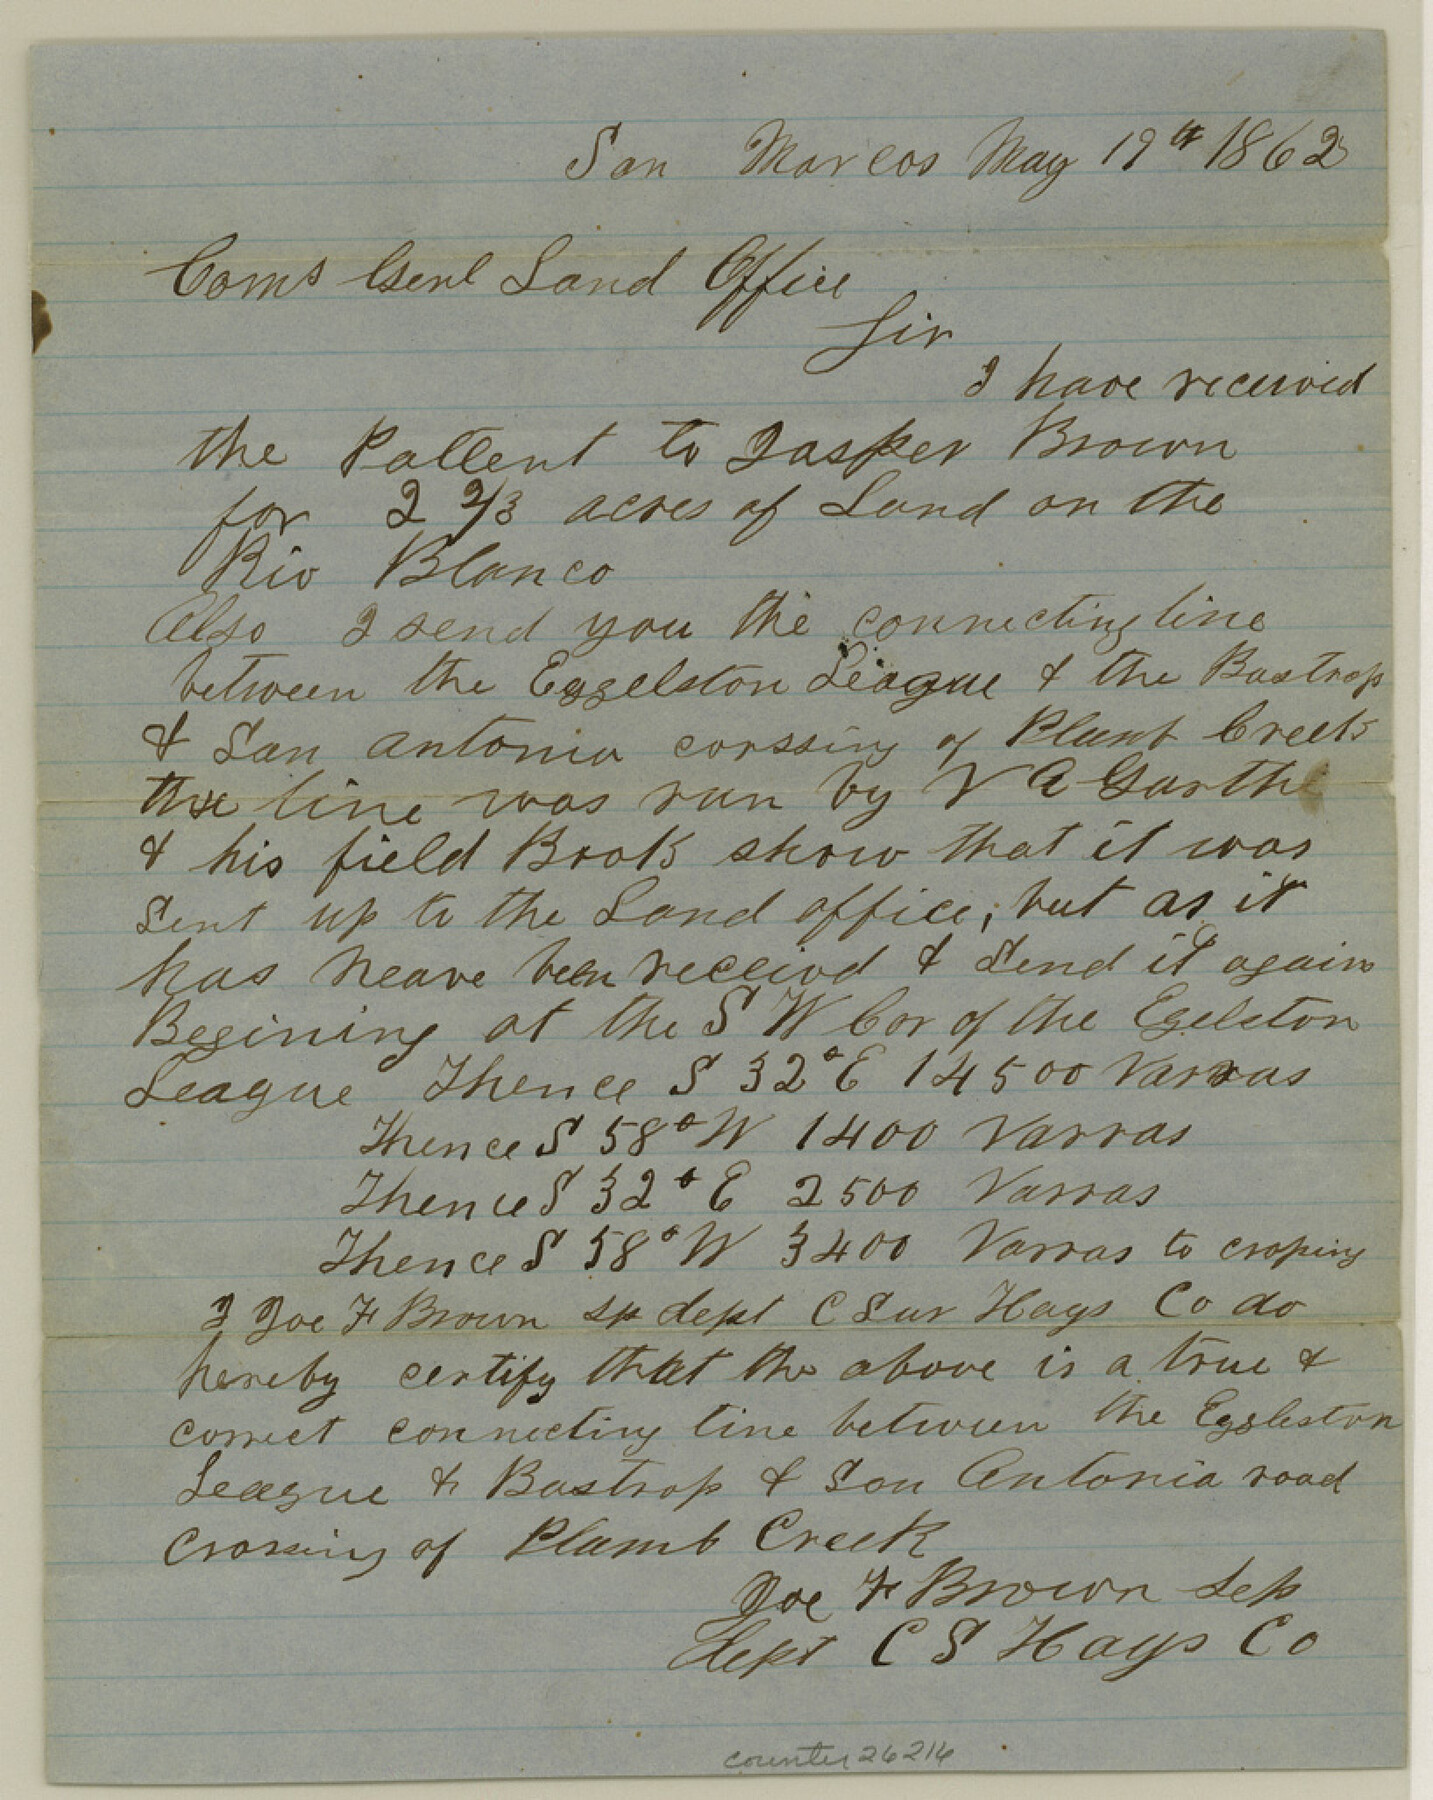 San Marcos May 19th 1862
Coms Genl Land Office
Sir
I have received
the Pattent to Jasper Brown
for 2 2/3 acres of Land on the
Rio Blanco
Also I send you the connecting line
between the Eggelston League & the Bastrop
& San Antonia corssing of Plumb Creek
the line was run by V A Garthe
& his field Book show that it was
Sent up to the Land office, but as it
has neave been receivd & Send it again
Begining at the S W Cor of the Egelston
League Thence S 32° E 14500 Varras
Thence S 58° W 1400 Varras
Thence S 32° E 2500 Varras
Thence S 58° W 3400 Varras to croping
I Joe F Brown sp dept C Sur Hays Co do
hereby certify that the above is a true &
correct connecting line between the Eggleston
League & Bastrop & San Antonia road
Crossing of Plumb Creek
Joe F Brown Sep
dept C S Hays Co
counter 26216